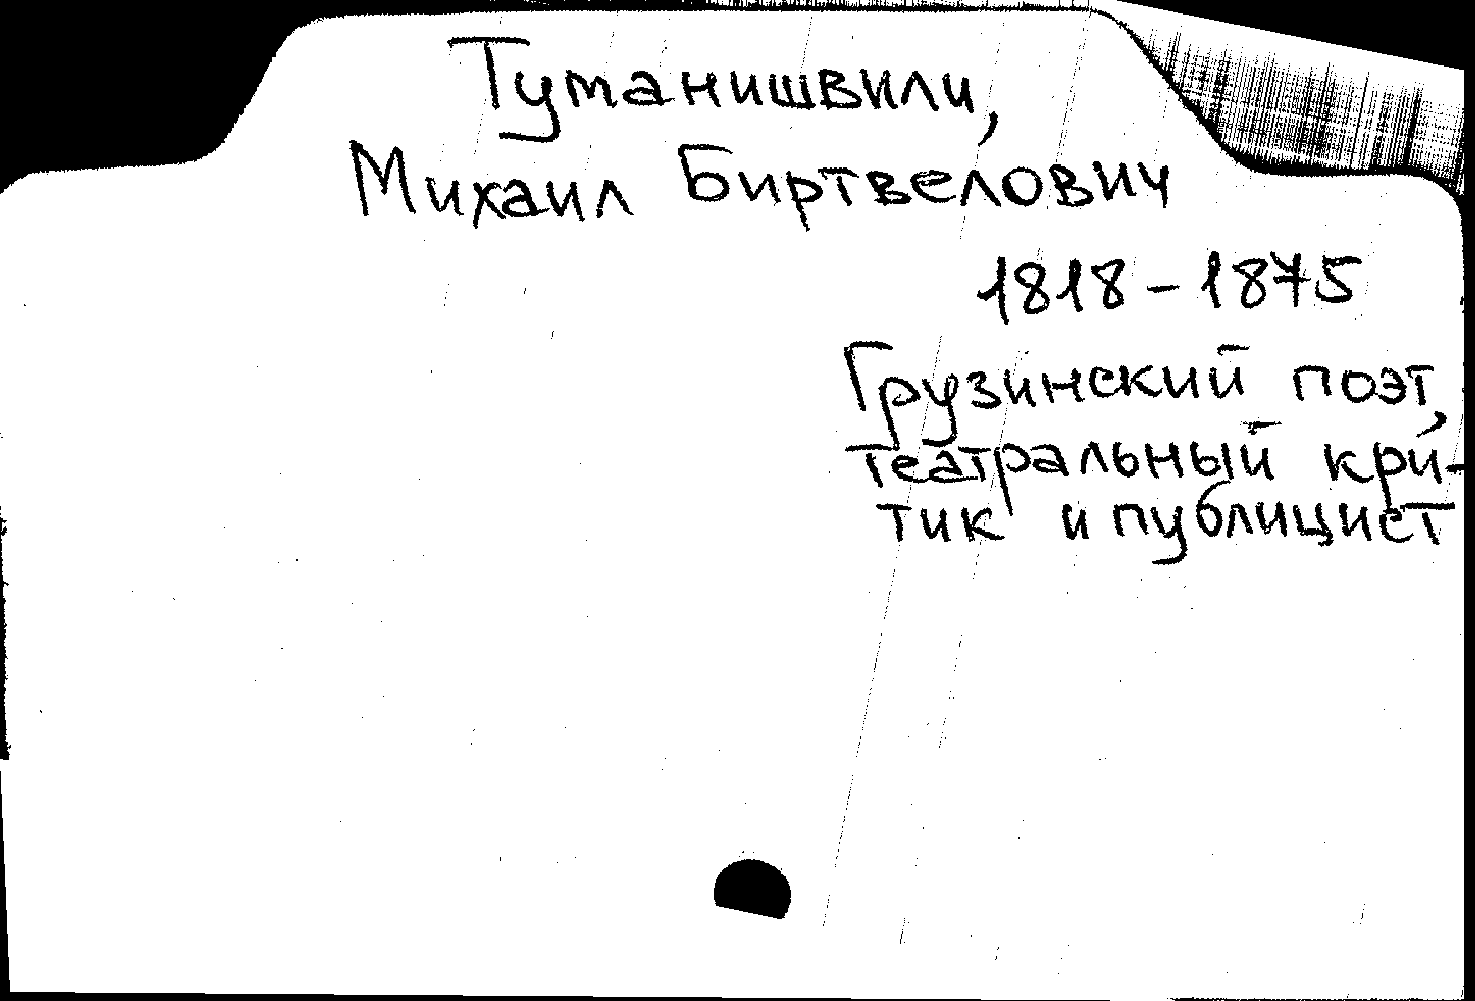 Туманишвили,
Михаил Биртвелович
1818-1875
Грузинский поэт,
театральный кри-
тик и публицист